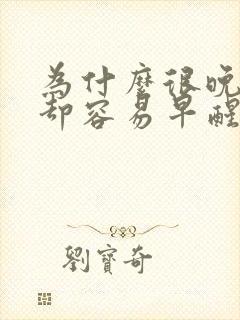 為什麼很晚
却容易早醒
劉寶奇